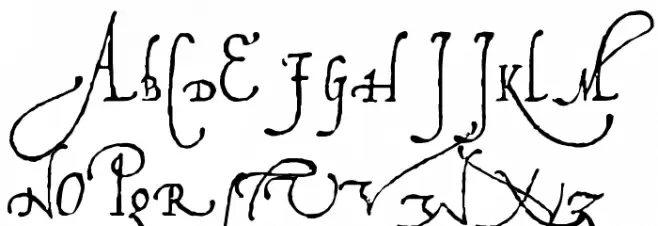 ABCDE FGH IJKLM
NOPQRSTUVWXYZ